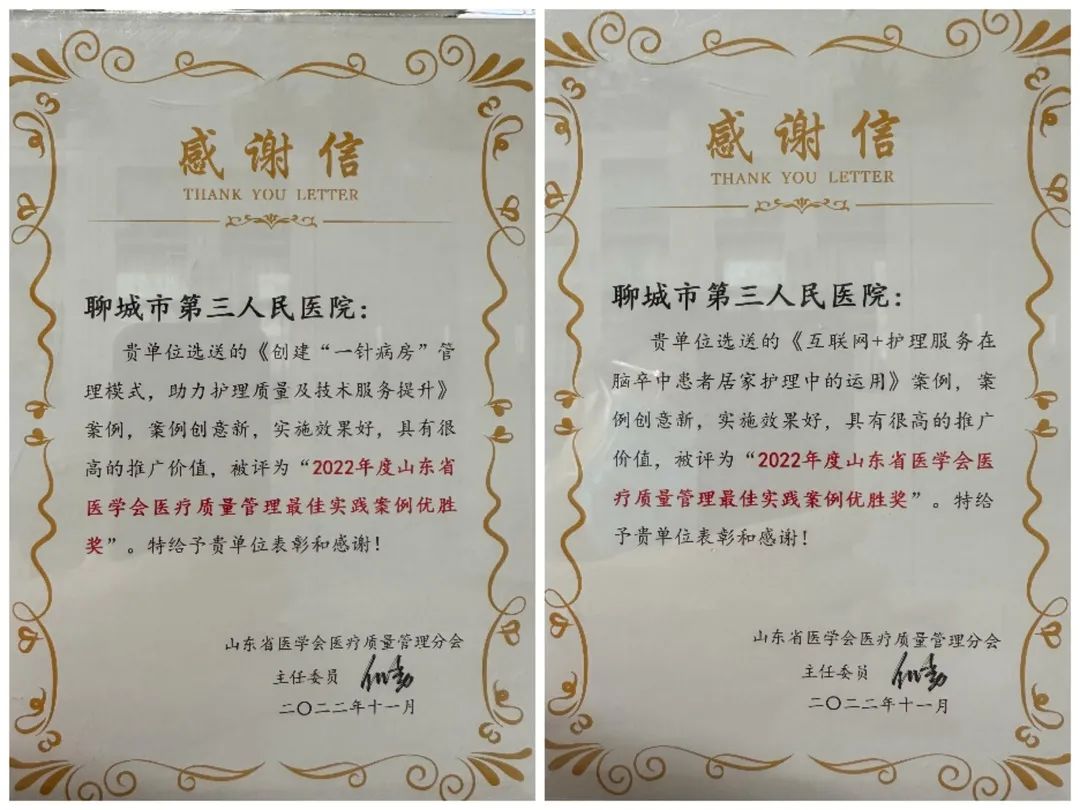 感谢信
THANK YOU LETTER
聊城市第三人民医院：
贵单位选送的《创建“一针病房”管
理模式，助力护理质量及技术服务提升》
案例，案例创意新，实施效果好，具有很
高的推广价值，被评为“2022年度山东省
医学会医疗质量管理最佳实践案例优胜
奖”。特给予贵单位表彰和感谢！
山东省医学会医疗质量管理分会
主任委员
二〇二二年十一月
感谢信
THANK YOU LETTER
聊城市第三人民医院：
贵单位选送的《互联网+护理服务在
脑卒中患者居家护理中的运用》案例，案
例创意新，实施效果好，具有很高的推广
价值，被评为“2022年度山东省医学会医
疗质量管理最佳实践案例优胜奖”。特给
予贵单位表彰和感谢！
山东省医学会医疗质量管理分会
主任委员
二〇二二年十一月